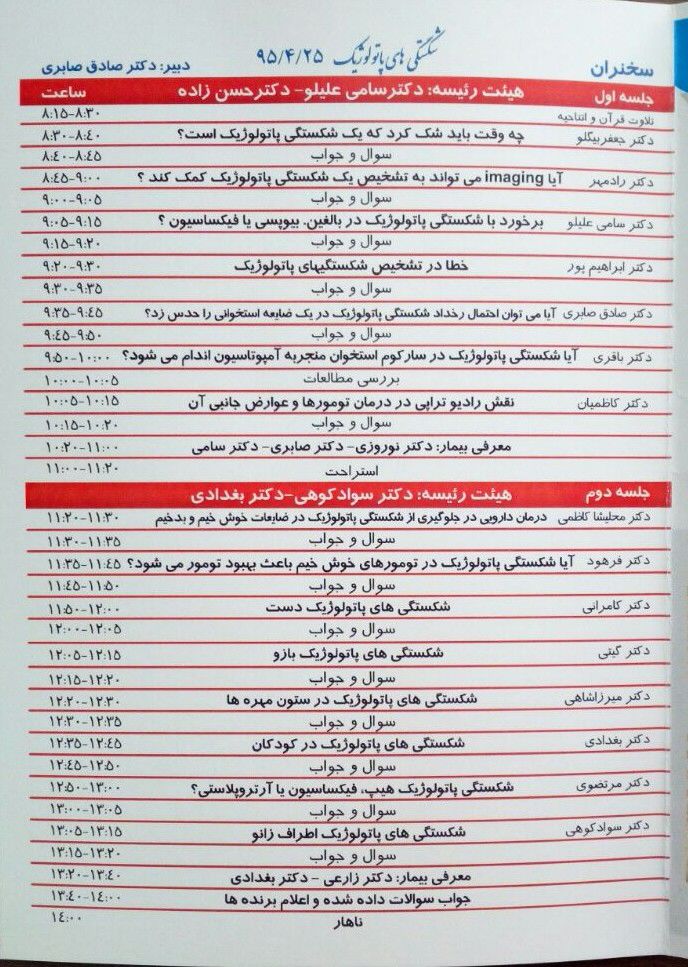 شکستگی های پاتولوژیک ۹۵/۴/۲۵
سخنران دبیر: دکتر صادق صابری
جلسه اول هیئت رئیسه: دکترسامی علیلو- دکترحسن زاده ساعت
تلاوت قرآن و افتتاحیه ۸:۱۵-۸:۳۰
دکتر جعفربیگلو چه وقت باید شک کرد که یک شکستگی پاتولوژیک است؟ ۸:۳۰-۸:۴۰
سوال و جواب ۸:۴۰-۸:۴۵
دکتر رادمهر آیا imaging می تواند به تشخیص یک شکستگی پاتولوژیک کمک کند ؟ ۸:۴۵-۹:۰۰
سوال و جواب ۹:۰۰-۹:۰۵
دکتر سامی علیلو برخورد با شکستگی پاتولوژیک در بالغین. بیوپسی یا فیکساسیون ؟ ۹:۰۵-۹:۱۵
سوال و جواب ۹:۱۵-۹:۲۰
دکتر ابراهیم پور خطا در تشخیص شکستگیهای پاتولوژیک ۹:۲۰-۹:۳۰
سوال و جواب ۹:۳۰-۹:۳۵
دکتر صادق صابری آیا می توان احتمال رخداد شکستگی پاتولوژیک در یک ضایعه استخوانی را حدس زد؟ ۹:۳۵-۹:۴۵
سوال و جواب ۹:۴۵-۹:۵۰
دکتر باقری آیا شکستگی پاتولوژیک در سارکوم استخوان منجربه آمپوتاسیون اندام می شود؟ ۹:۵۰-۱۰:۰۰
بررسی مطالعات ۱۰:۰۰-۱۰:۰۵
دکتر کاظمیان نقش رادیو تراپی در درمان تومورها و عوارض جانبی آن ۱۰:۰۵-۱۰:۱۵
سوال و جواب ۱۰:۱۵-۱۰:۲۰
معرفی بیمار: دکتر نوروزی- دکتر صابری- دکتر سامی ۱۰:۲۰-۱۱:۰۰
استراحت ۱۱:۰۰-۱۱:۲۰
جلسه دوم هیئت رئیسه: دکتر سوادکوهی-دکتر بغدادی
دکتر مجلیشا کاظمی درمان دارویی در جلوگیری از شکستگی پاتولوژیک در ضایعات خوش خیم و بدخیم ۱۱:۲۰-۱۱:۳۰
سوال و جواب ۱۱:۳۰-۱۱:۳۵
دکتر فرهود آیا شکستگی پاتولوژیک در تومورهای خوش خیم باعث بهبود تومور می شود؟ ۱۱:۳۵-۱۱:۴۵
سوال و جواب ۱۱:۴۵-۱۱:۵۰
دکتر کامرانی شکستگی های پاتولوژیک دست ۱۱:۵۰-۱۲:۰۰
سوال و جواب ۱۲:۰۰-۱۲:۰۵
دکتر گیتی شکستگی های پاتولوژیک بازو ۱۲:۰۵-۱۲:۱۵
سوال و جواب ۱۲:۱۵-۱۲:۲۰
دکتر میرزاشاهی شکستگی های پاتولوژیک در ستون مهره ها ۱۲:۲۰-۱۲:۳۰
سوال و جواب ۱۲:۳۰-۱۲:۳۵
دکتر بغدادی شکستگی های پاتولوژیک در کودکان ۱۲:۳۵-۱۲:۴۵
سوال و جواب ۱۲:۴۵-۱۲:۵۰
دکتر مرتضوی شکستگی پاتولوژیک هیپ، فیکساسیون یا آرتروپلاستی؟ ۱۲:۵۰-۱۳:۰۰
سوال و جواب ۱۳:۰۰-۱۳:۰۵
دکتر سوادکوهی شکستگی های پاتولوژیک اطراف زانو ۱۳:۰۵-۱۳:۱۵
سوال و جواب ۱۳:۱۵-۱۳:۲۰
معرفی بیمار: دکتر زارعی - دکتر بغدادی ۱۳:۲۰-۱۳:۴۰
جواب سوالات داده شده و اعلام برنده ها ۱۳:۴۰-۱۴:۰۰
ناهار ۱۴:۰۰